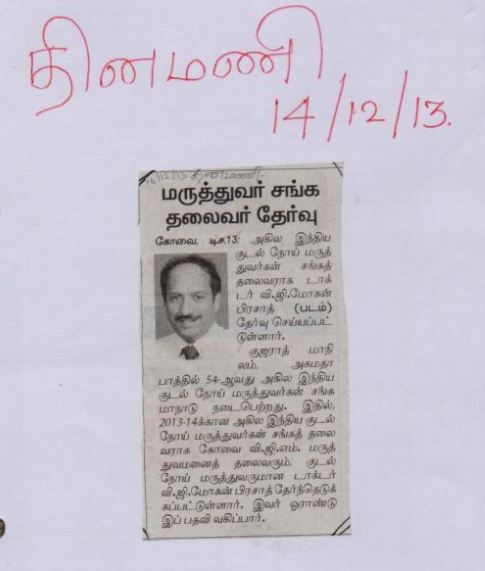 தினமணி
14/12/13.
14/12/13 தினமணி.
மருத்துவர் சங்க
தலைவர் தேர்வு
கோவை, டிச.13: அகில இந்திய
குடல் நோய் மருத்
துவர்கள் சங்கத்
தலைவராக டாக்
டர் வி.ஜி.மோகன்
பிரசாத் (படம்)
தேர்வு செய்யப்பட்
டுள்ளார்.
குஜராத் மாநி
லம், அகமதா
பாத்தில் 54-ஆவது அகில இந்திய
குடல் நோய் மருத்துவர்கள் சங்க
மாநாடு நடைபெற்றது. இதில்,
2013-14க்கான அகில இந்திய குடல்
நோய் மருத்துவர்கள் சங்கத் தலை
வராக கோவை வி.ஜி.எம். மருத்
துவமனைத் தலைவரும், குடல்
நோய் மருத்துவருமான டாக்டர்
வி.ஜி.மோகன் பிரசாத் தேர்ந்தெடுக்
கப்பட்டுள்ளார். இவர் ஓராண்டு
இப் பதவி வகிப்பார்.